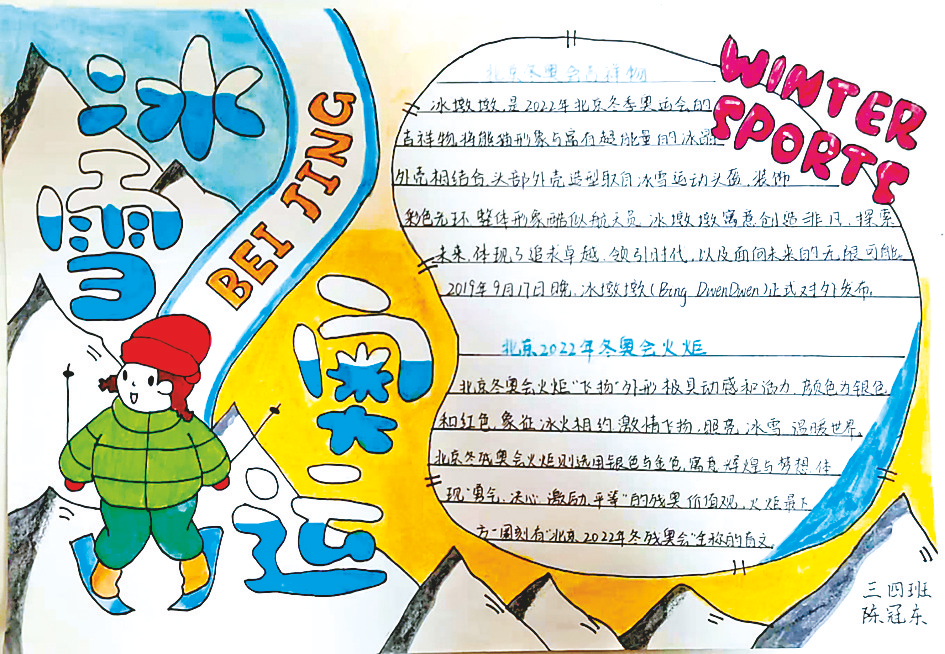 冰雪奥运
BEI JING
WINTER
SPORTS
北京冬奥会吉祥物
冰墩墩,是2022年北京冬季奥运会的
吉祥物,将熊猫形象与富有超能量的冰晶
外壳相结合,头部外壳造型取自冰雪运动头盔,装饰
彩色光环,整体形象酷似航天员,冰墩墩寓意创造非凡、探索
未来,体现了追求卓越、领引时代,以及面向未来的无限可能。
2019年9月17日晚,冰墩墩(Bing DwenDwen)正式对外发布.
北京2022年冬奥会火炬
北京冬奥会火炬"飞扬"外形极具动感和活力,颜色为银色
和红色,象征冰火相约,激情飞扬,照亮冰雪,温暖世界。
北京冬残奥会火炬则选用银色与金色,寓意辉煌与梦想,体
现"勇气、决心、激励、平等"的残奥价值观,火炬最下
方一圈刻有"北京2022年冬残奥会"全称的盲文
三四班
陈冠东